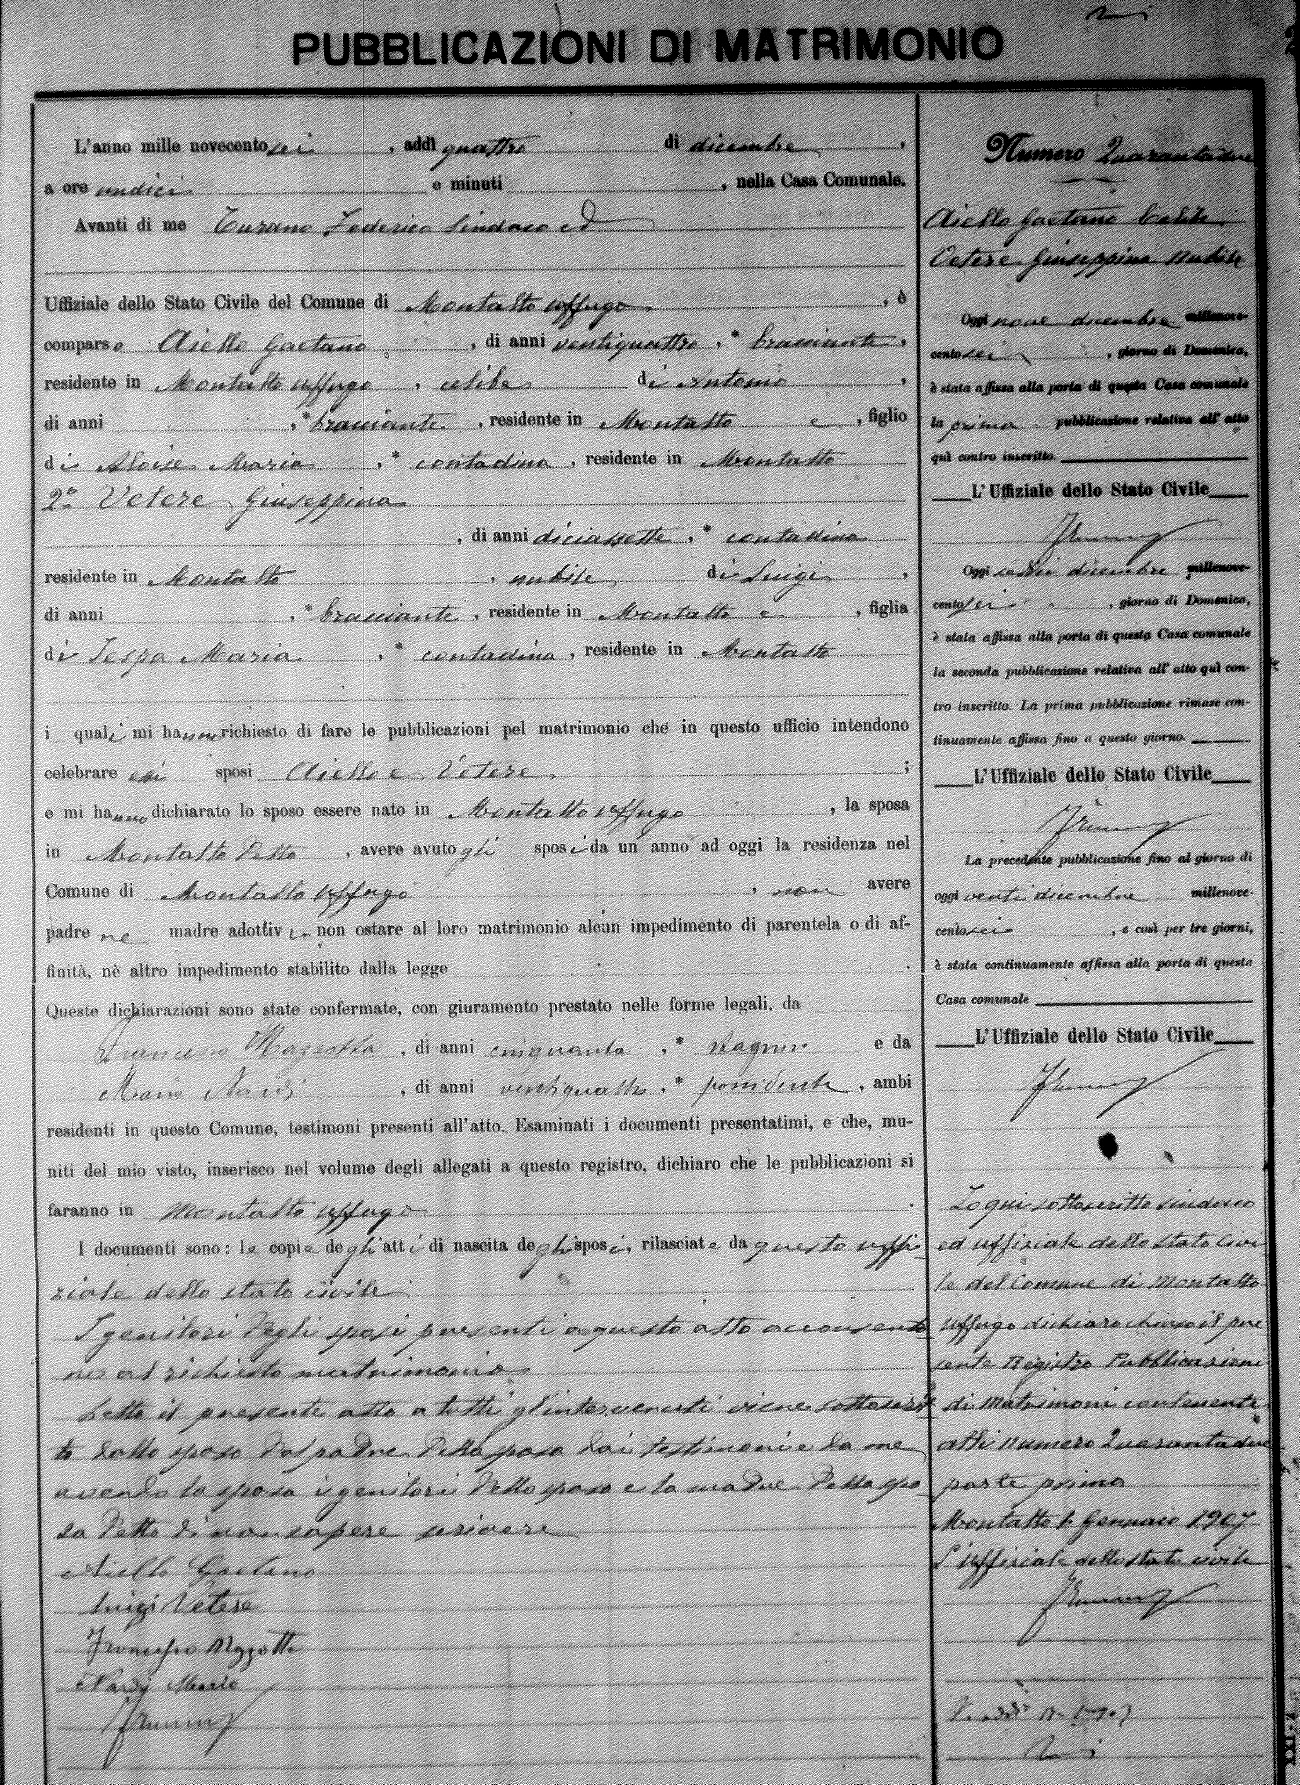 PUBBLICAZIONI DI MATRIMONIO
L'anno mille novecento sei, addì quattro di dicembre,
a ore undici e minuti , nella Casa Comunale.
Avanti di me Turano Federico Sindaco ed
Uffiziale dello Stato Civile del Comune di Montalto Uffugo, è
comparso Aiello Gaetano, di anni ventiquattro, * bracciante,
residente in Montalto Uffugo, celibe di Antonio,
di anni , * bracciante, residente in Montalto e, figlio
di Aloise Maria, * contadina, residente in Montalto
2° Vetere Giuseppina
, di anni diciassette, * contadina
residente in Montalto, nubile di Luigi,
di anni , * bracciante, residente in Montalto e, figlia
di Maria, * contadina, residente in Montalto
i quali mi hanno richiesto di fare le pubblicazioni pel matrimonio che in questo ufficio intendono
celebrare essi sposi Aiello e Vetere;
e mi hanno dichiarato lo sposo essere nato in Montalto Uffugo, la sposa
in Montalto detto, avere avuto gli sposi da un anno ad oggi la residenza nel
Comune di Montalto Uffugo, non avere
padre ne madre adottivi, non ostare al loro matrimonio alcun impedimento di parentela o di af-
finità, nè altro impedimento stabilito dalla legge.
Queste dichiarazioni sono state confermate, con giuramento prestato nelle forme legali, da
Francesco Mazzotta, di anni cinquanta, * e da
Mario Nardi, di anni ventiquattro, * possidente, ambi
residenti in questo Comune, testimoni presenti all'atto. Esaminati i documenti presentatimi, e che, mu-
niti del mio visto, inserisco nel volume degli allegati a questo registro, dichiaro che le pubblicazioni si
faranno in Montalto Uffugo.
I documenti sono: le copie degli atti di nascita degli sposi, rilasciate da questo uffi-
ziale dello stato civile
I genitori degli sposi presenti a questo atto acconsento
no al richiesto matrimonio
Letto il presente atto a tutti gl'intervenuti viene sottoscrit
to dallo sposo dal padre della sposa dai testimoni e da me
avendo la sposa i genitori dello sposo e la madre della spo-
sa detto di non sapere scrivere
Aiello Gaetano
Luigi Vetere
Francesco Mazzotta
Nardi Mario
Numero Quarantadue
Aiello Gaetano Celibe
Vetere Giuseppina nubile
Oggi nove dicembre millenove-
cento sei, giorno di Domenica,
è stata affissa alla porta di questa Casa comunale
la prima pubblicazione relativa all'atto
quì contro inscritto.
L'Uffiziale dello Stato Civile
Oggi sedici dicembre millenove-
cento sei, giorno di Domenica,
è stata affissa alla porta di questa Casa comunale
la seconda pubblicazione relativa all'atto quì con-
tro inscritto. La prima pubblicazione rimase con-
tinuamente affissa fino a questo giorno.
L'Uffiziale dello Stato Civile
La precedente pubblicazione fino al giorno di
oggi venti dicembre millenove-
cento sei, e così per tre giorni,
è stata continuamente affissa alla porta di questa
Casa comunale
L'Uffiziale dello Stato Civile
Io qui sottoscritto sindaco
ed uffiziale dello stato civi
le del Comune di Montalto
Uffugo dichiaro chiuso il pre
sente Registro Pubblicazioni
di Matrimoni contenente
atti numero Quarantadue
parte prima
Montalto 1 Gennaio 1907
L'uffiziale dello stato civile